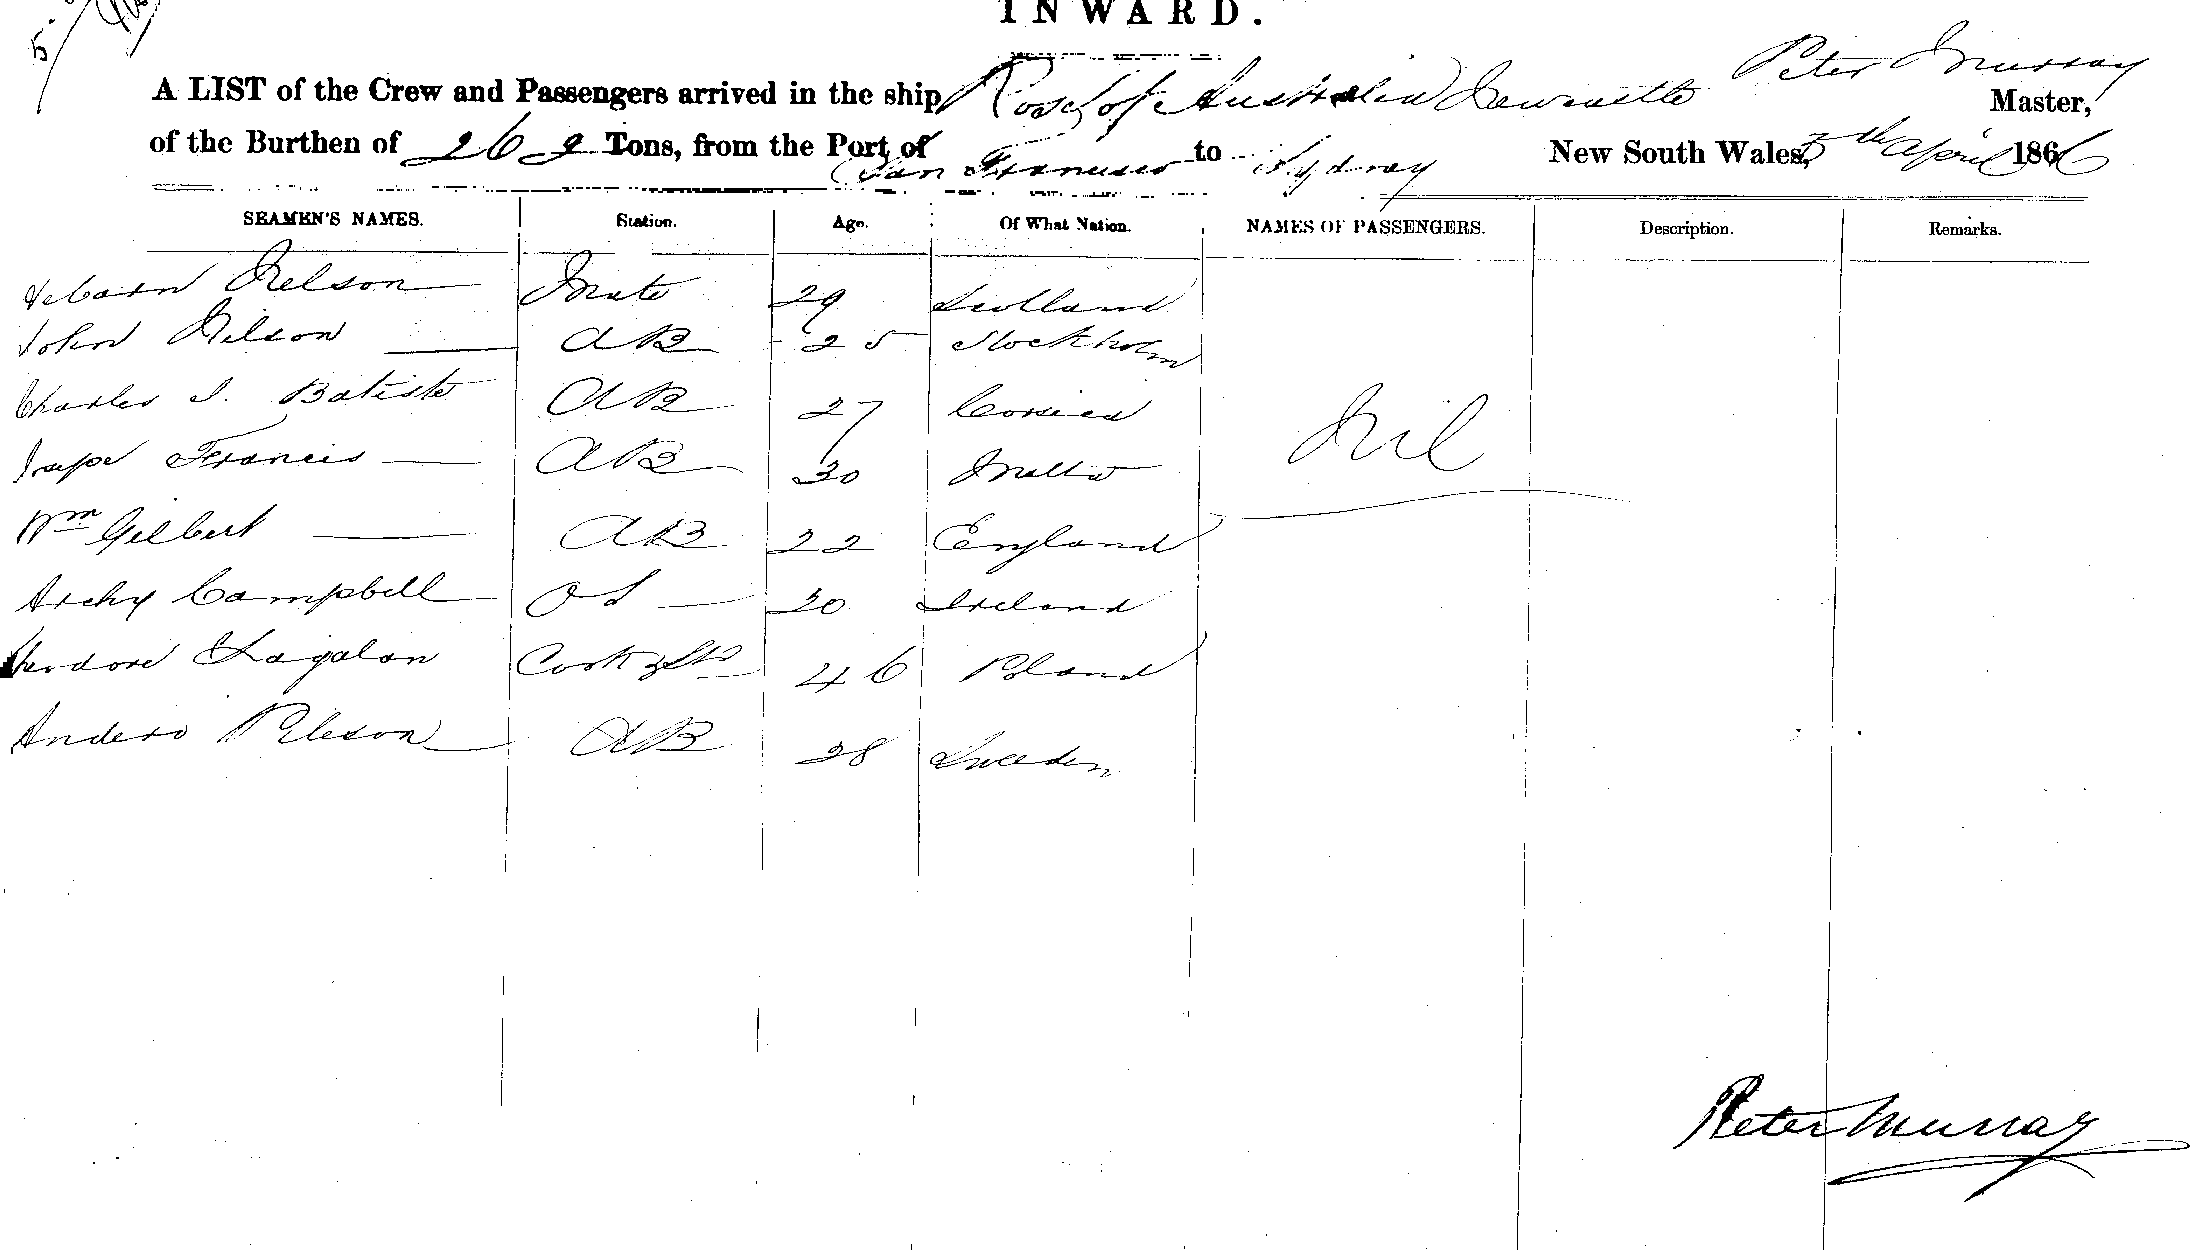 INWARD.
A LIST of the Crew and Passengers arrived in the ship Rose of Australia Newcastle Peter Murray Master,
of the Burthen of 262 Tons, from the Port of San Francisco to Sydney New South Wales, 5th April 1866
SEAMEN'S NAMES. Station. Age. Of What Nation. NAMES OF PASSENGERS. Description. Remarks.
Nelson Mate 29 Scotland
John Nilson AB 25 Stockholm
Charles J. Batiste AB 27 Corsica
Francis AB 30 Malta
Nil
Wm Gilbert AB 22 England
Archy Campbell OS 20 Ireland
Lagalan Cook & Std 46 Poland
Anders AB 28 Sweden
Peter Murray